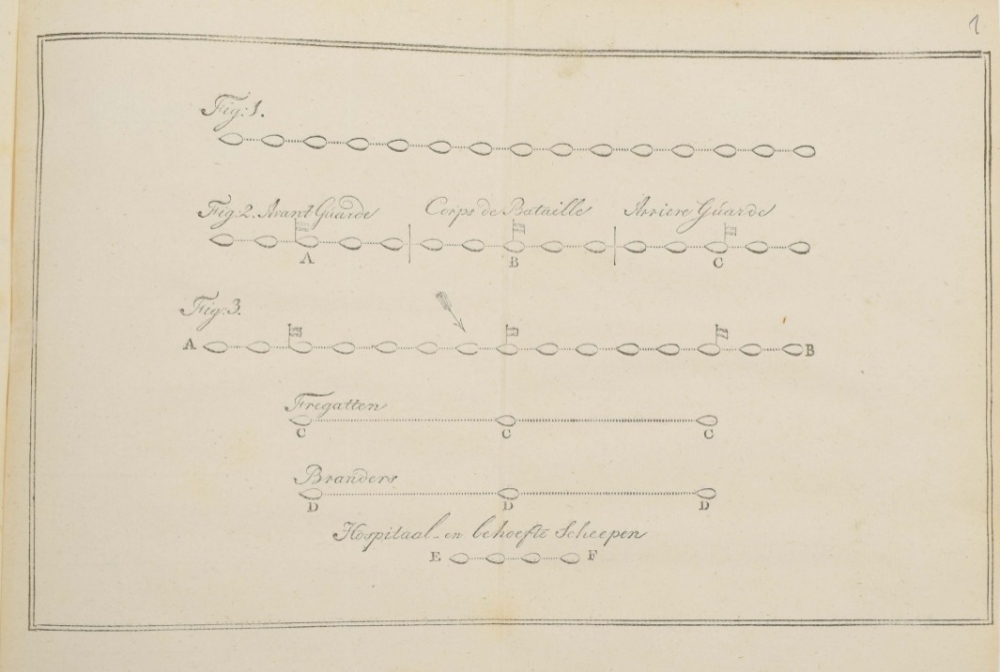 1
Fig: 1.
Fig: 2. Avant Guarde Corps de Bataille Arriere Guarde
A B C
Fig: 3.
A B
Fregatten
C C C
Branders
D D D
Hospitaal-en behoefte Scheepen
E F